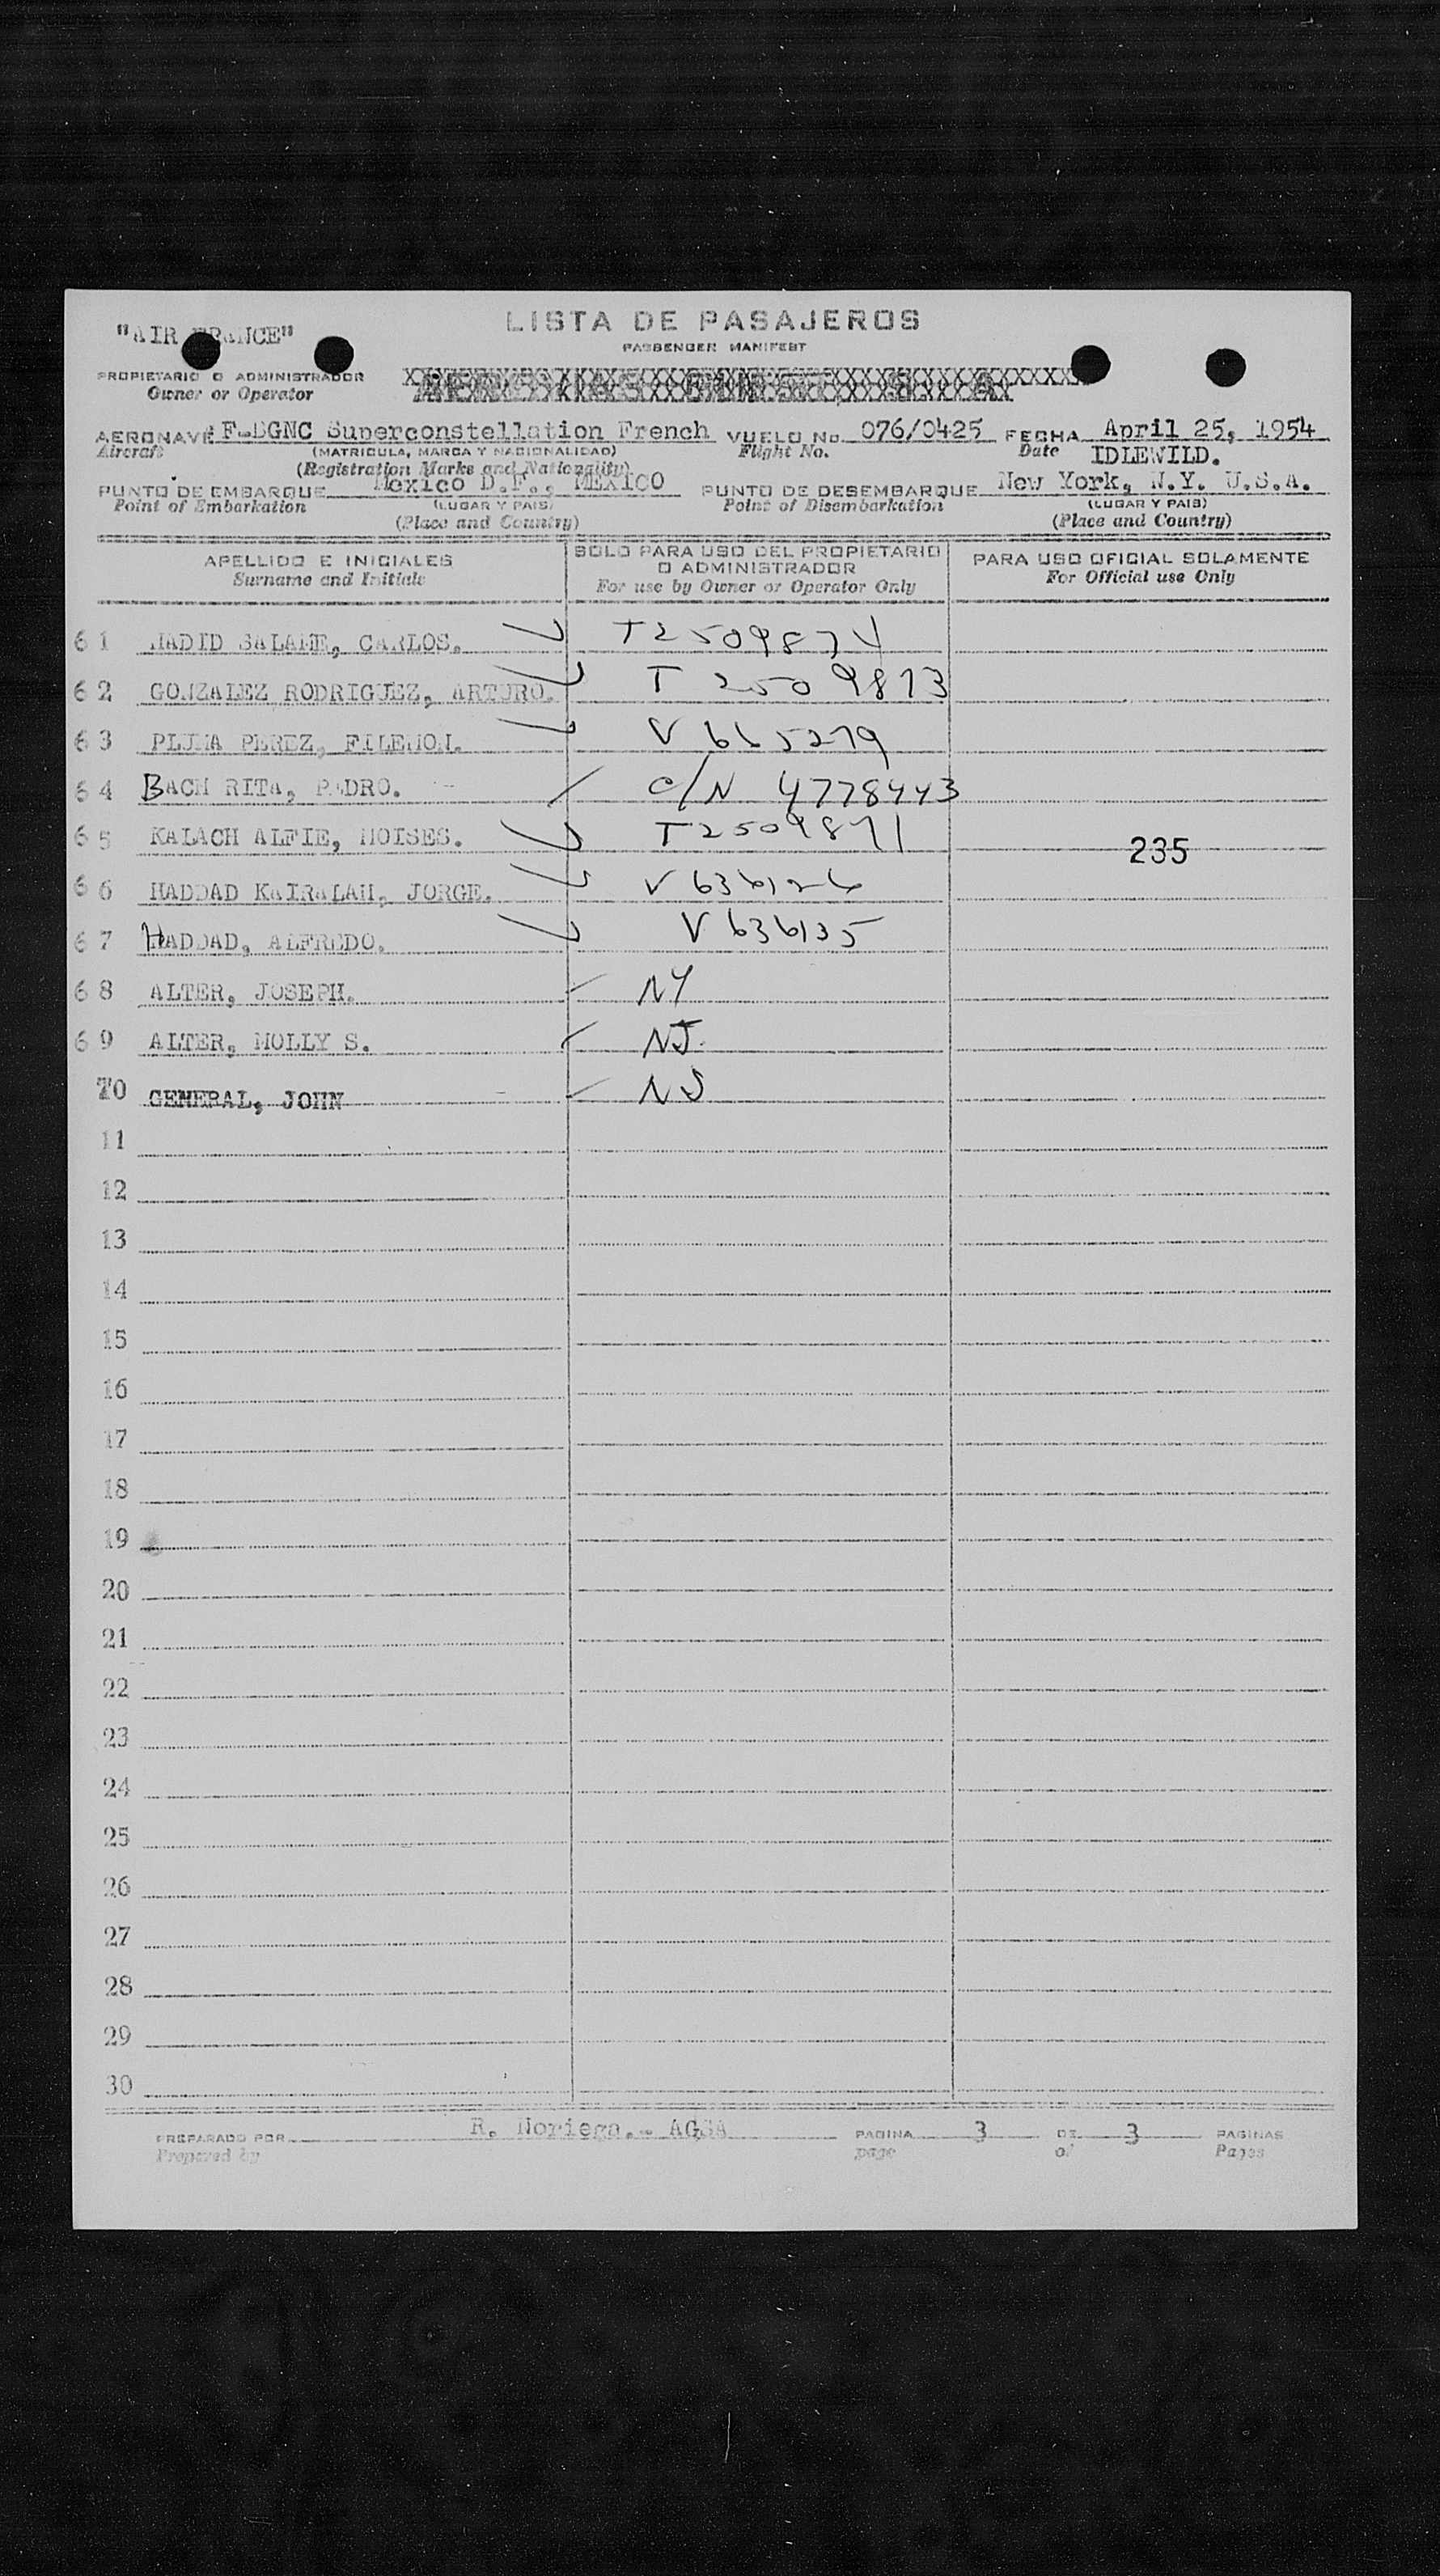 "AIR FRANCE"
LISTA DE PASAJEROS
PASSENGER MANIFEST
PROPIETARIO O ADMINISTRADOR
Owner or Operator
AERONAVE F-BGNC Superconstellation French VUELO No. 076/0425 FECHA April 25, 1954
Aircraft (MATRICULA, MARCA Y NACIONALIDAD) Flight No. Date IDLEWILD.
(Registration Marks and Nationality)
PUNTO DE EMBARQUE Mexico D.F., MEXICO PUNTO DE DESEMBARQUE New York, N.Y. U.S.A.
Point of Embarkation (LUGAR Y PAIS) Point of Disembarkation (LUGAR Y PAIS)
(Place and Country) (Place and Country)
APELLIDO E INICIALES SOLO PARA USO DEL PROPIETARIO O ADMINISTRADOR PARA USO OFICIAL SOLAMENTE
Surname and Initials For use by Owner or Operator Only For Official use Only
61 HADID SALAME, CARLOS. T2509874
62 GONZALEZ RODRIGUEZ, ARTURO. T 2509873
63 PLUMA PEREZ, FILEMON. V 665279
64 BACH RITA, PEDRO. C/N 4778443
65 KALACH ALFIE, MOISES. T2509871
235
66 HADDAD KAIRALAH, JORGE. V 636126
67 HADDAD, ALFREDO. V 636135
68 ALTER, JOSEPH. NY
69 ALTER, MOLLY S. NJ.
70 GENERAL, JOHN NJ
11
12
13
14
15
16
17
18
19
20
21
22
23
24
25
26
27
28
29
30
PREPARADO POR R. Noriega.- AGSA PAGINA 3 DE 3 PAGINAS
Prepared by page of Pages